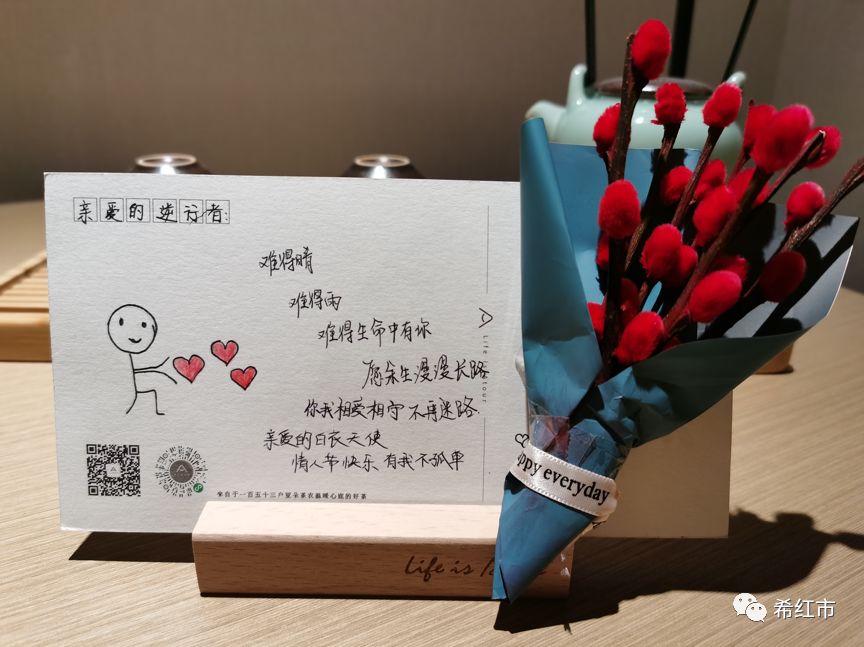 亲爱的逆行者:
难得晴
难得雨
难得生命中有你
愿余生漫漫长路
你我相爱相守不再迷路
亲爱的白衣天使
情人节快乐 有我不孤单
来自于一百五十三户夏朵茶农温暖心底的好茶
Life
tour
ppy everyday
Life is
希红市